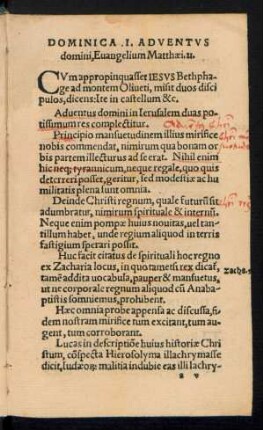 DOMINICA .I. ADVENTVS
domini, Euangelium Matthæi.21.
CVm appropinquasset IESVS Bethpha
ge ad montem Oliueti, misit duos disci
pulos, dicens: Ite in castellum &c.
Aduentus domini in Ierusalem duas po-
tissimum res complectitur.
Principio mansuetudinem illius mirifice
nobis commendat, nimirum qua bonam or
bis partem illecturus ad se erat. Nihil enim
hic neq; tyrannicum, neque regale, quo quis
deterreri posset, geritur, sed modestiæ ac hu
militatis plena sunt omnia.
Deinde Christi regnum, quale futurū sit
adumbratur, nimirum spirituale & internū.
Neque enim pompæ huius nouitas, uel tan
tillum habet, unde regium aliquod in terris
fastigium sperari possit.
Huc facit citatus de spirituali hoc regno
ex Zacharia locus, in quo tametsi rex dicaf,
tamē addita uocabula, pauper & mansuetus,
ut ne corporale regnum aliquod cū Anaba
ptistis somniemus, prohibent.
Zach.9
Hæc omnia probe appensa ac discussa, fi-
dem nostram mirifice tum excitant, tum au
gent, tum corroborant.
Lucas in descriptiōe huius historiæ Chri
stum, cōspecta Hierosolyma illachrymasse
dicit, Iudæorū malitia indubie eas illi lachry-